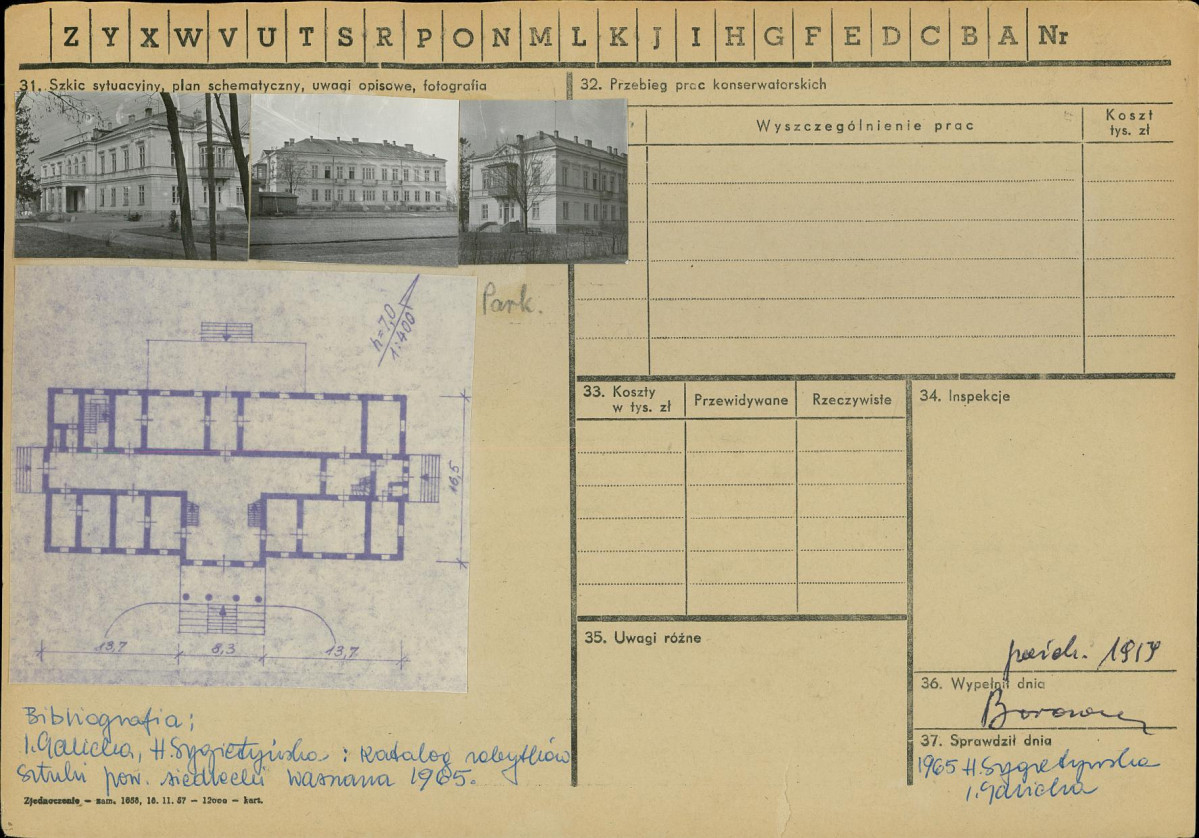 Z Y X W V U T S R P O N M L K J I H G F E D C B A Nr
31. Szkic sytuacyjny, plan schematyczny, uwagi opisowe, fotografia
Park.
h=7,0
1:400
16,5
13,7 8,3 13,7
Bibliografia;
I. Galicka, H. Sygietyńska : Katalog zabytków
Sztuki pow. siedlecki Warszawa 1965.
Zjednoczenie – zam. 1656, 16. 11. 57 – 12000 – kart.
32. Przebieg prac konserwatorskich
Wyszczególnienie prac
Koszt
tys. zł
33. Koszty
w tys. zł
Przewidywane
Rzeczywiste
34. Inspekcje
35. Uwagi różne
paźdz. 1959
36. Wypełnił dnia
37. Sprawdził dnia
1965 H. Sygietyńska
I. Galicka